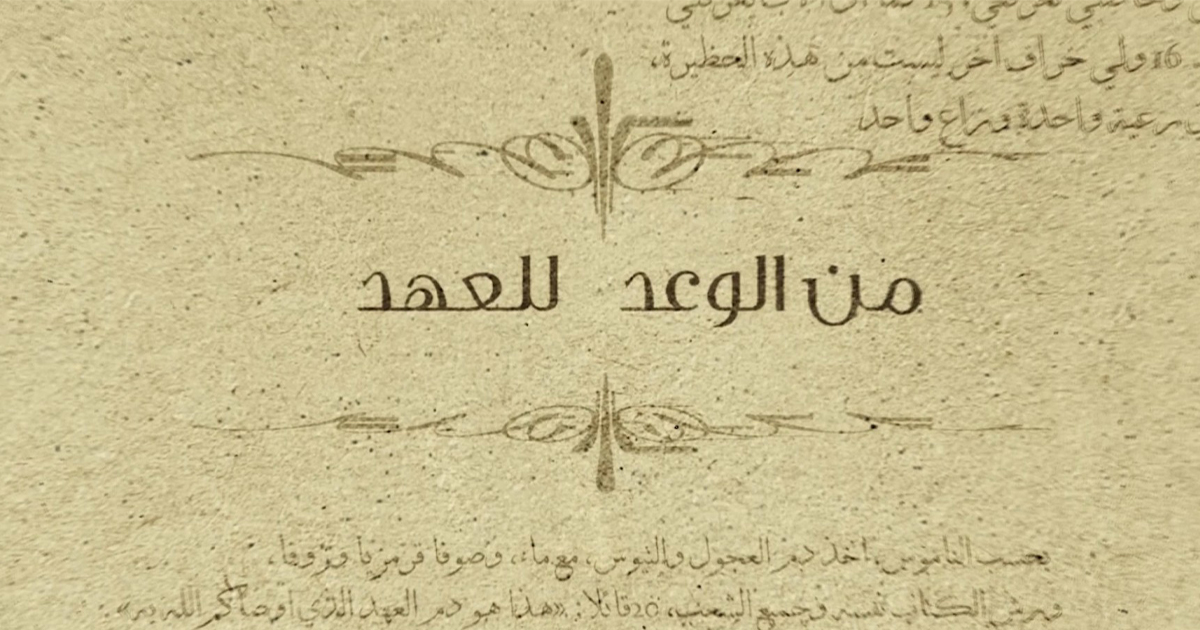 16 ولي خراف أخر ليست من هذه الحظيرة،
رعية واحدة وراع واحد
من الوعد للعهد
بحسب الناموس، أخذ دم العجول والتيوس، مع ماء، وصوفا قرمزيا وزوفا،
ورش الكتاب نفسه وجميع الشعب، 20 قائلا: «هذا هو دم العهد الذي أوصاكم الله به».